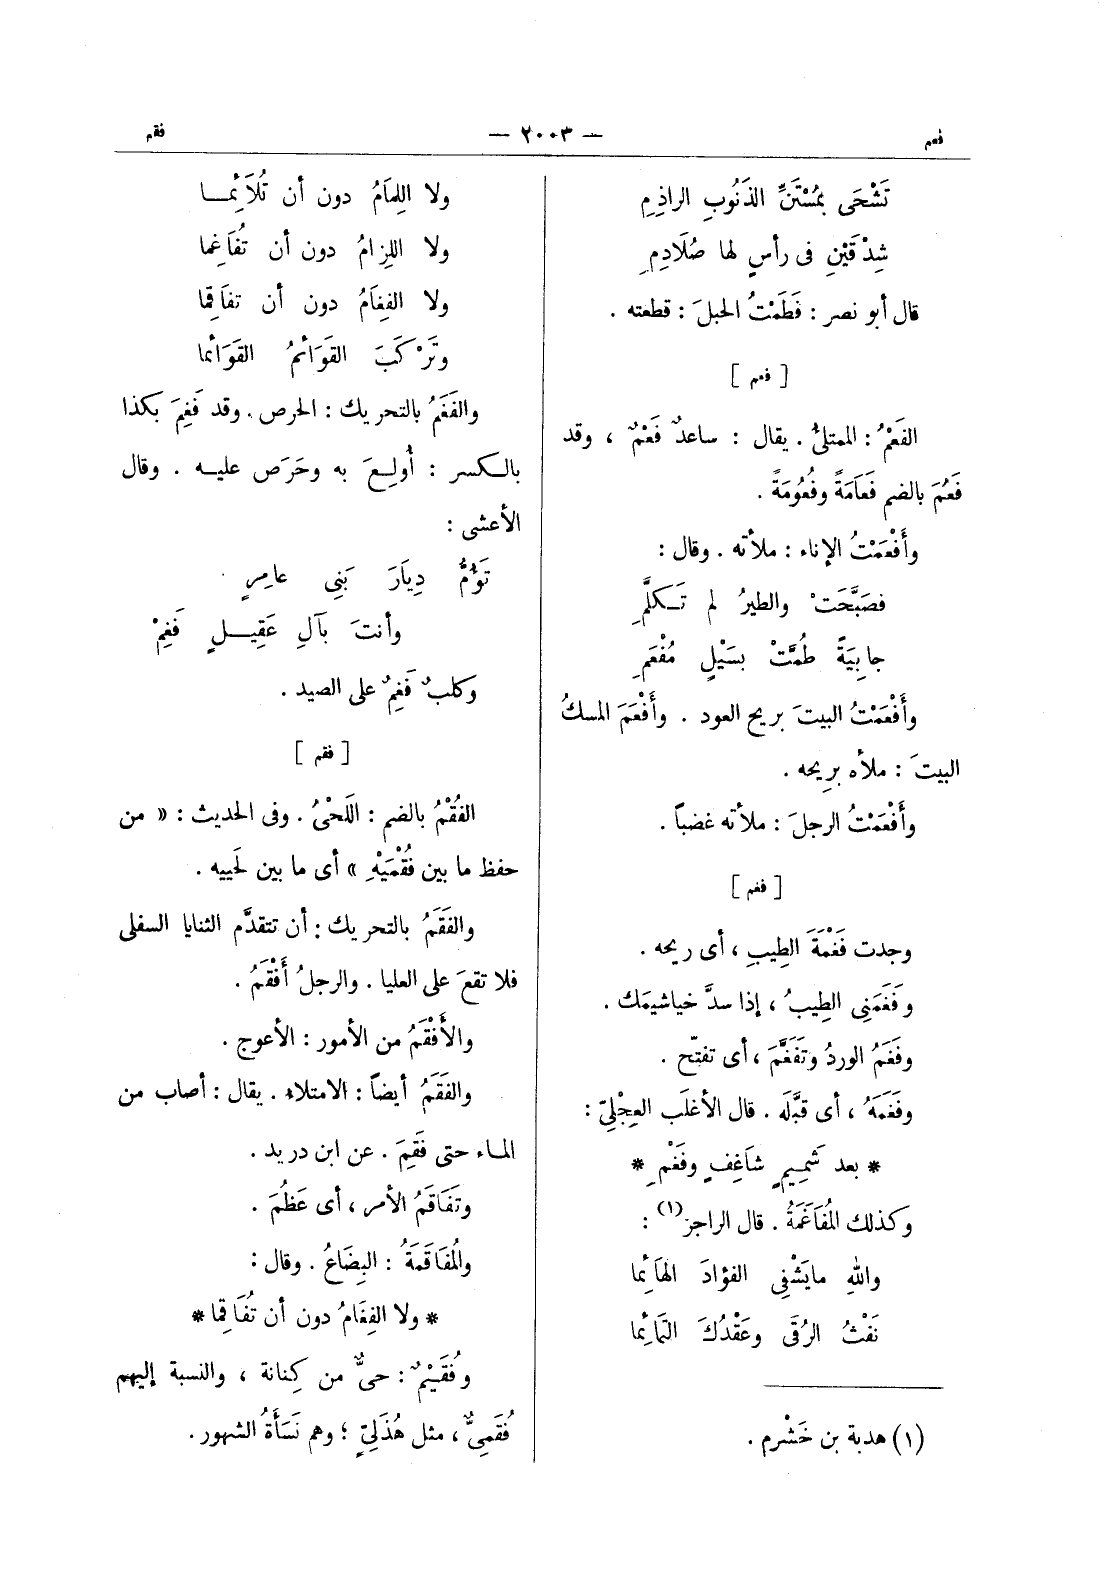 فعم
— ٢٠٠٣ —
فقم
تَشْحَى بمُسْتَنِّ الذَنُوبِ الراذِمِ
شِدْقَيْنِ فى رأسٍ لها صُلَادِمِ
قال أبو نصر : فَطَمْتُ الحبلَ : قطعته .
[ فعم ]
الفَعْمُ : الممتلئُ . يقال : ساعدٌ فَعْمٌ ، وقد
فَعُمَ بالضم فَعَامَةً وفُعُومَةً .
وأَفْعَمْتُ الإناء : ملأته . وقال :
فصَبَّحَتْ والطيرُ لم تَكَلَّمِ
جابِيَةً طُمَّتْ بسَيْلٍ مُفْعَمِ
وأَفْعَمْتُ البيتَ بريح العود . وأَفْعَمَ المسكُ
البيتَ : ملأه بِرِيحه .
وأَفْعَمْتُ الرجلَ : ملأته غضباً .
[ فغم ]
وجدت فَغْمَةَ الطِيبِ ، أى ريحه .
وفَغَمَنِى الطِيبُ ، إذا سدَّ خياشيمَك .
وفَغَمَ الوردُ وتَفَغَّمَ ، أى تفتّح .
وفَغَمَهُ ، أى قبَّلَه . قال الأغلَب العِجْلِىّ :
* بعد شَمِيمٍ شاغِفٍ وفَغْمِ *
وكذلك المُفَاغَمَةُ . قال الراجز(١) :
واللهِ مايَشْفِى الفؤادَ الهَائِمَا
نَفْثُ الرُقَى وعَقْدُكَ التَمَائِما
(١) هدبة بن خَشْرم .
ولا اللِمَامُ دون أن تُلَائِمَـا
ولا اللِزامُ دون أن تُفَاغِما
ولا الفِغَامُ دون أن تفَاقِما
وتَرْكَبَ القَوَائمُ القَوَائما
والفَغَمُ بالتحريك : الحرص . وقد فَغِمَ بكذا
بالكسر : أُولِعَ به وحَرَص عليه . وقال
الأعشى :
تَؤُمُّ دِيَارَ بَنِى عامِرٍ
وأنتَ بآلِ عَقِيلٍ فَغِمْ
وكلبٌ فَغِمٌ على الصيد .
[ فقم ]
الفُقْمُ بالضم : اللَحْىُ . وفى الحديث : « من
حفظ ما بين فُقْمَيْهِ » أى ما بين لَحييه .
والفَقَمُ بالتحريك : أن تتقدَّم الثنايا السفلى
فلا تقعَ على العليا . والرجلُ أَفْقَمُ .
والأَفْقَمُ من الأمور : الأعوج .
والفَقَمُ أيضاً : الامتلاء . يقال : أصاب من
الماء حتى فَقِمَ . عن ابن دريد .
وتَفَاقَمُ الأمر ، أى عَظُمَ .
والمُفَاقَمَةُ : البِضَاعُ . وقال :
* ولا الفِغَامُ دون أن تُفَاقِما *
وفُقَيْمٌ : حىٌّ من كِنانة ، والنسبة إليهم
فُقَمِىٌّ ، مثل هُذَلِىّ ؛ وهم نَسَأَةُ الشهور .